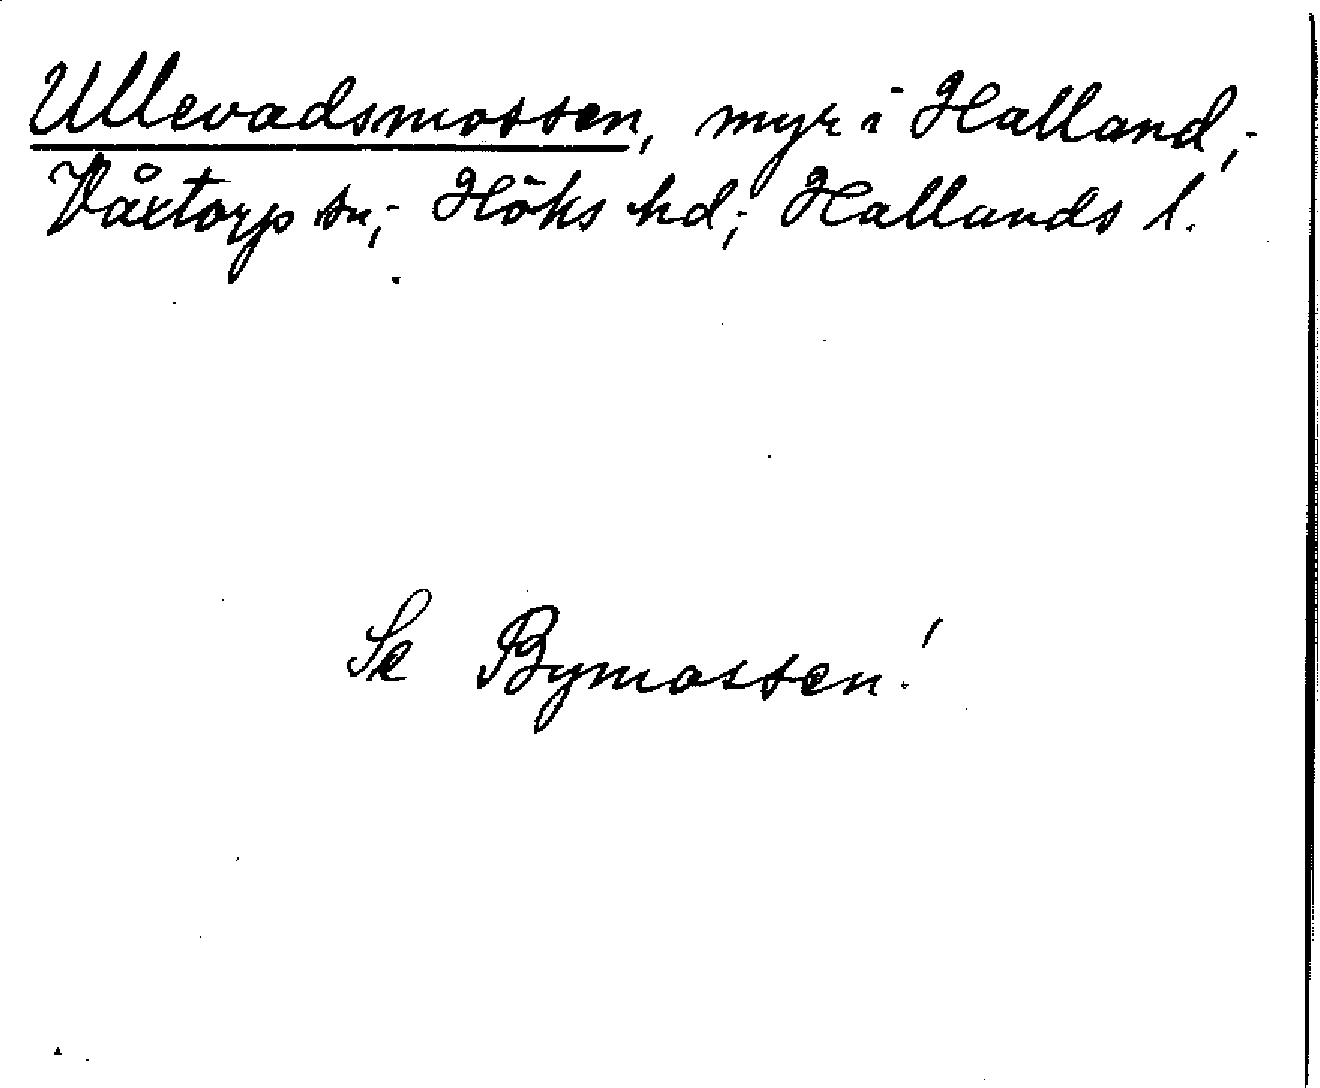 Ullevadsmossen, myr i Halland;
Våxtorp sn; Höks hd; Hallands l.
Se Bymossen!